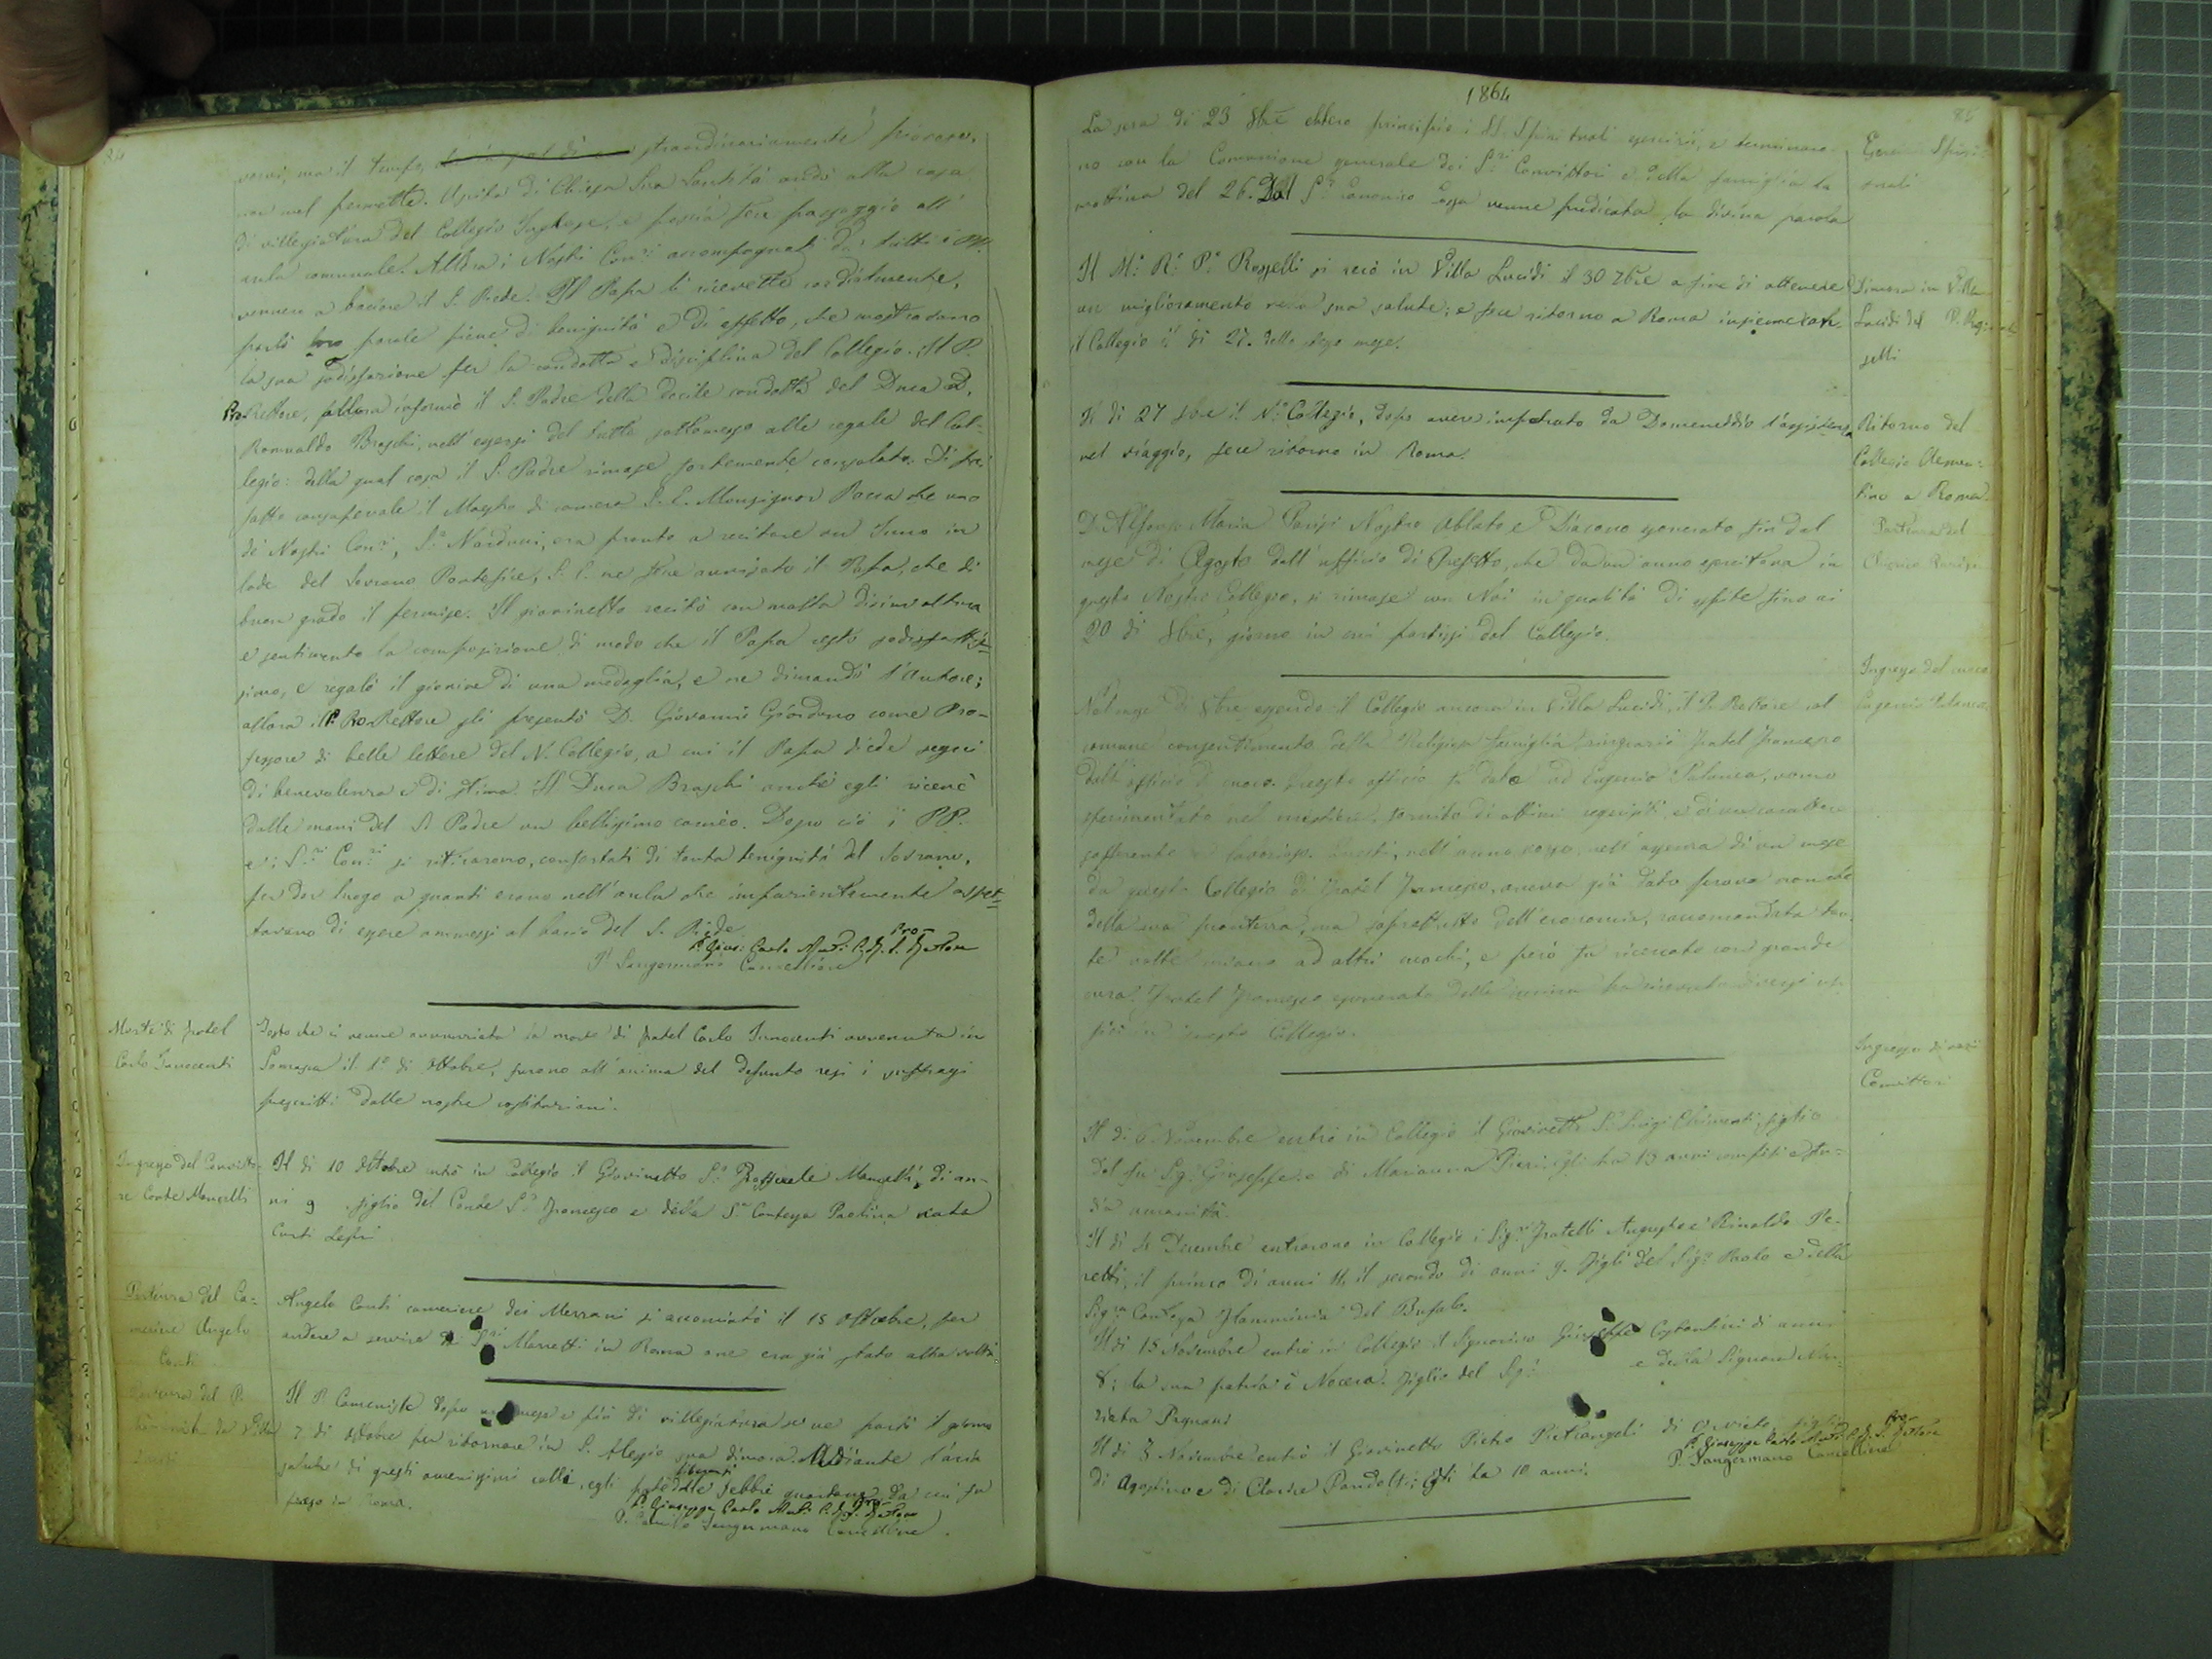 84
varvi, ma il tempo, straordinariamente piovoso,
non nel permette. Uscita di Chiesa Sua Santità andò alla casa
di villegiatura del Collegio Inglese, e poscia fece passaggio all'
aula comunale. Allora i Nostri Conri accompagnati da tutti i PP.
vennero a baciare il S. Piede. Il Papa li ricevette cordialmente,
parlò loro parole piene di benignità e di affetto, che mostravano
la sua sodisfazione per la condotta e disciplina del Collegio. Il P.
Pro-Rettore, allora informò il S. Padre della docile condotta del Duca D.
Romualdo Braschi, nell'essersi del tutto sottomesso alle regole del Col-
legio: della qual cosa il S. Padre rimase fortemente consolato. Di poi
fatto consapevole il Maestro di camera S. E. Monsignor Pacca che uno
de' Nostri Conri, Sr Narducci, era pronto a recitare un Inno in
lode del Sovrano Pontefice, S. E. ne fece avvisato il Papa, che di
buon grado il permise. Il giovinetto recitò con molta disinvoltura
e sentimento la composizione di modo che il Papa restò sodisfattis-
simo, e regalò il giovine di una medaglia, e ne dimandò l'autore;
allora il P. Pro-Rettore gli presentò D. Giovanni Giordano come Pro-
fessore di belle lettere del N. Collegio, a cui il Papa diede segni
di benevolenza e di stima. Il Duca Braschi anch'egli ricevè
dalle mani del S. Padre un bellissimo cameo. Dopo ciò i PP.
e i Sri Conri si ritirarono, confortati di tanta benignità del Sovrano,
per dar luogo a quanti erano nell'aula che impazientemente aspet-
tavano di essere ammessi al bacio del S. Piede.
P. Gius: Carlo C.R.S. Pro-Rettore
P. Sangermano Cancelliere
Morte di fratel
Carlo Innocenti
Tosto che ci venne annunziata la morte di fratel Carlo Innocenti avvenuta in
Somasca il 1° di Ottobre, furono all'anima del defunto resi i suffragi
prescritti dalle nostre costituzioni.
Ingresso del Convitto-
re Conte Manzelli
Il di 10 Ottobre entrò in Collegio il Giovinetto Sr Raffaele Manzelli, di an-
ni 9 figlio del Conte Sr Francesco e della Sra Contessa Paolina nata
Conti Lepri
Partenza del Ca-
meriere Angelo
Conti
Angelo Conti cameriere dei Mezzani si accomiatò il 15 Ottobre, per
andare a servire i Sri Massetti in Roma ove era già stato altra volta
Partenza del P.
Il P. Camenisk dopo un mese e più di villegiatura se ne partì il giorno
7. di Ottobre per ritornare in S. Alessio sua dimora. Mediante l'aria
salubre di questi amenissimi colli, egli liberossi dalle febbri quartane da cui fu
preso in Roma.
P. Giuseppe Carlo C.R.S. Pro-Rettore
P. Camillo Sangermano Cancelliere.
1864
85
La sera di 23 8bre ebbero principio i SS. Spirituali esercizii, e terminaro-
no con la Comunione generale dei Sri Convittori e della famiglia la
mattina del 26. Dal Sr Canonico venne predicata la divina parola
Spiri-
tuali
Il M: R: P: Rosselli si recò in Villa Lucidi il 30 7bre a fine di ottenere
un miglioramento nella sua salute; e fece ritorno a Roma insieme con
il Collegio il di 27. dello stesso mese.
Dimora in Villa
Lucidi del P. Ros-
selli
Il di 27 8bre il No Collegio, dopo avere impetrato da Domeneddio l'assistenza
nel viaggio, fece ritorno in Roma.
Ritorno del
Collegio Clemen-
tino a Roma
D. Alfonso Maria Parisi Nostro Oblato e Diacono esonerato fin dal
mese di Agosto dall'ufficio di Prefetto, che da un anno esercitava in
questo Nostro Collegio, si rimase con Noi in qualità di ospite fino ai
20 di 8bre, giorno in cui partissi dal Collegio.
Partenza del
Chierico Parisi
Nel mese di 8bre essendo il Collegio ancora in Villa Lucidi, il P. Rettore col
comune consentimento della Religiosa famiglia ringraziò fratel Francesco
dall'officio di cuoco. Questo officio fu dato ad Eugenio Palanca, uomo
sperimentato nel mestiere, fornito di ottimi requisiti e di un carattere
sofferente e laborioso. Questi, nell'anno scorso, nell'assenza di un mese
da questo Collegio di fratel Francesco, aveva già dato prova non che
della sua prontezza, ma soprattutto dell'economia, raccomandata tan-
te volte invano ad altri cuochi, e però fu ricercato con grande
cura. Fratel Francesco esonerato dalla cucina ha diversi uf-
fici in questo Collegio.
Ingresso del cuoco
Eugenio Palanca
Ingresso di varii
Convittori
Il di 6. Novembre entrò in Collegio il Giovinetto Sr Luigi Chimenti, figlio
del fu Sigr Giuseppe e di Marianna Pieri. Egli ha 13 anni compiti e stu-
dia umanità.
Il di 4 Decembre entrarono in Collegio i Sigri Fratelli Augusto e Rinaldo Pe-
retti, il primo di anni 11, il secondo di anni 9. Figli del Sigr Paolo e della
Sigra Contessa Flamminia del Bufalo.
Il di 15 Novembre entrò in Collegio il Signorino Giuseppe Costantini di anni
8; la sua patria è Nocera. Figlio del Sigr e della Signora Nun-
ziata Pagnani
Il di 3 Novembre entrò il Giovinetto Pietro Pietrangeli di Orvieto figlio
di Agostino e di Clarice Pandolfi; Egli ha 10 anni.
P. Giuseppe Carlo C.R.S. Pro-Rettore
P. Sangermano Cancelliere